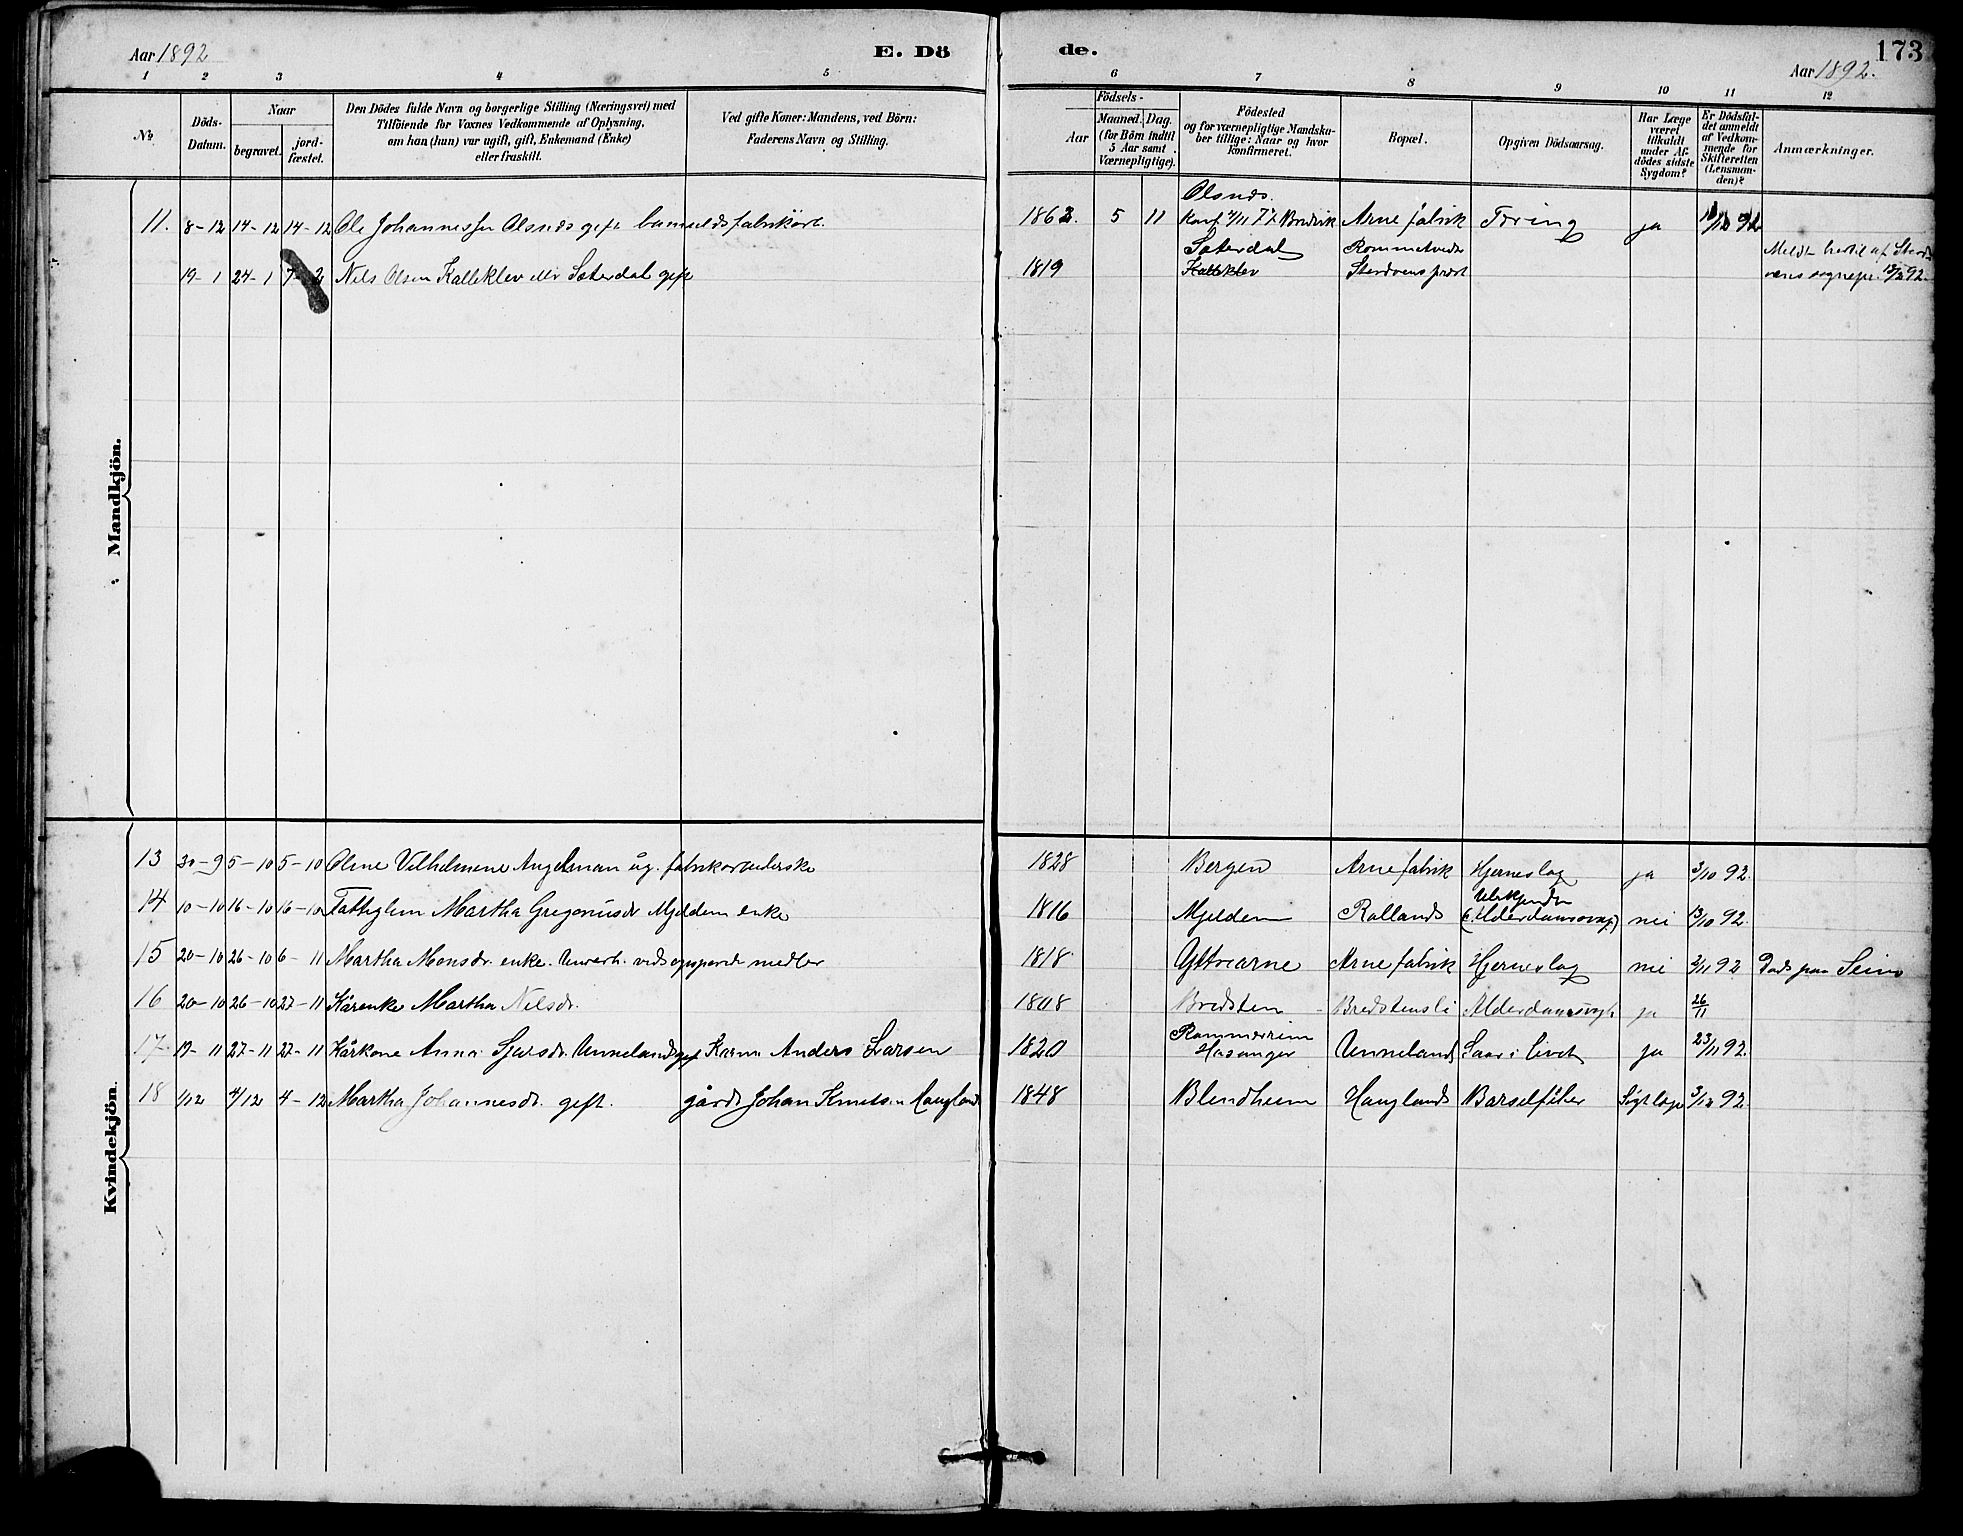 Aar 1892
E. Dö
de.
173
Aar 1892.
1 2 3 4 5 6 7 8 9 10 11 12
No
Döds-Datum.
Naar
begravet.
jord-fæstet.
Den Dödes fulde Navn og borgerlige Stilling (Næringsvei) med
Tilföiende for Voxnes Vedkommende af Oplysning,
om han (hun) var ugift, gift, Enkemand (Enke)
eller fraskilt.
Ved gifte Koner: Mandens, ved Börn:
Faderens Navn og Stilling.
Födsels-
Aar
Maaned. Dag.
(for Börn indtil
5 Aar samt
Værnepligtige).
Födested
og for værnepligtige Mandska-
ber tillige: Naar og hvor
konfirmeret.
Bopæl.
Opgiven Dödsaarsag.
Har Læge
været
tilkaldt
under Af-
dödes sidste
Sygdom?
Er Dödsfal-
det anmeldt
af Vedkom-
mende for
Skifteretten
(Lensman-
den)?
Anmærkninger.
Mandkjön.
11. 8-12 14-12 14-12 Ole Johannessen Olsnds gift bomuldsfabrikarb. 1862. 5 11 Olsnds. Konf 4/11 77 Bredvik Arne fabrik Tæring ja 10/12 92
19-1 24-1 7-2 Nils Olsen Kalleklev ell. Sæterdal gift 1819 Sæterdal Kalleklev Rommetvedt Stordøens prest Meldt hertil af Stord-
øens sognepr. 13/2 92.
Kvindekjön.
13 30-9 5-10 5-10 Oline Vilhelmine Angelman ug. fabrikarbeiderske 1828 Bergen Arne fabrik Hjerneslag ja 3/10 92.
14 10-10 16-10 16-10 Fattiglem Martha Gregoriusdr. Mjeldem enke 1816 Mjeldem Rollands Ubekjendt (Alderdomssvagh) nei 13/10 92.
15 20-10 26-10 6-11 Martha Monsdr. enke. Underh. ved opsparede midler 1818 Yttrearne Arne fabrik Hjerneslag nei 2/11 92 Døds paa Seim
16 20-10 26-10 27-11 Kårenke Martha Nilsdr. 1808 Bredsten Bredstensli Alderdomssvagh ja 26/11
17 19-11 27-11 27-11 Kårkone Anna Sjursdr. Unnelands gift Kårm. Anders Larsen 1820 Rommereim Hosanger Unneland Saar i livet ja 23/11 92.
18 1/12 4/12 4-12 Martha Johannesdr. gift. gårdb Johan Knutsen Haugland 1848 Blindheim Hauglands Barselfeber Sygt læge 3/12 92.